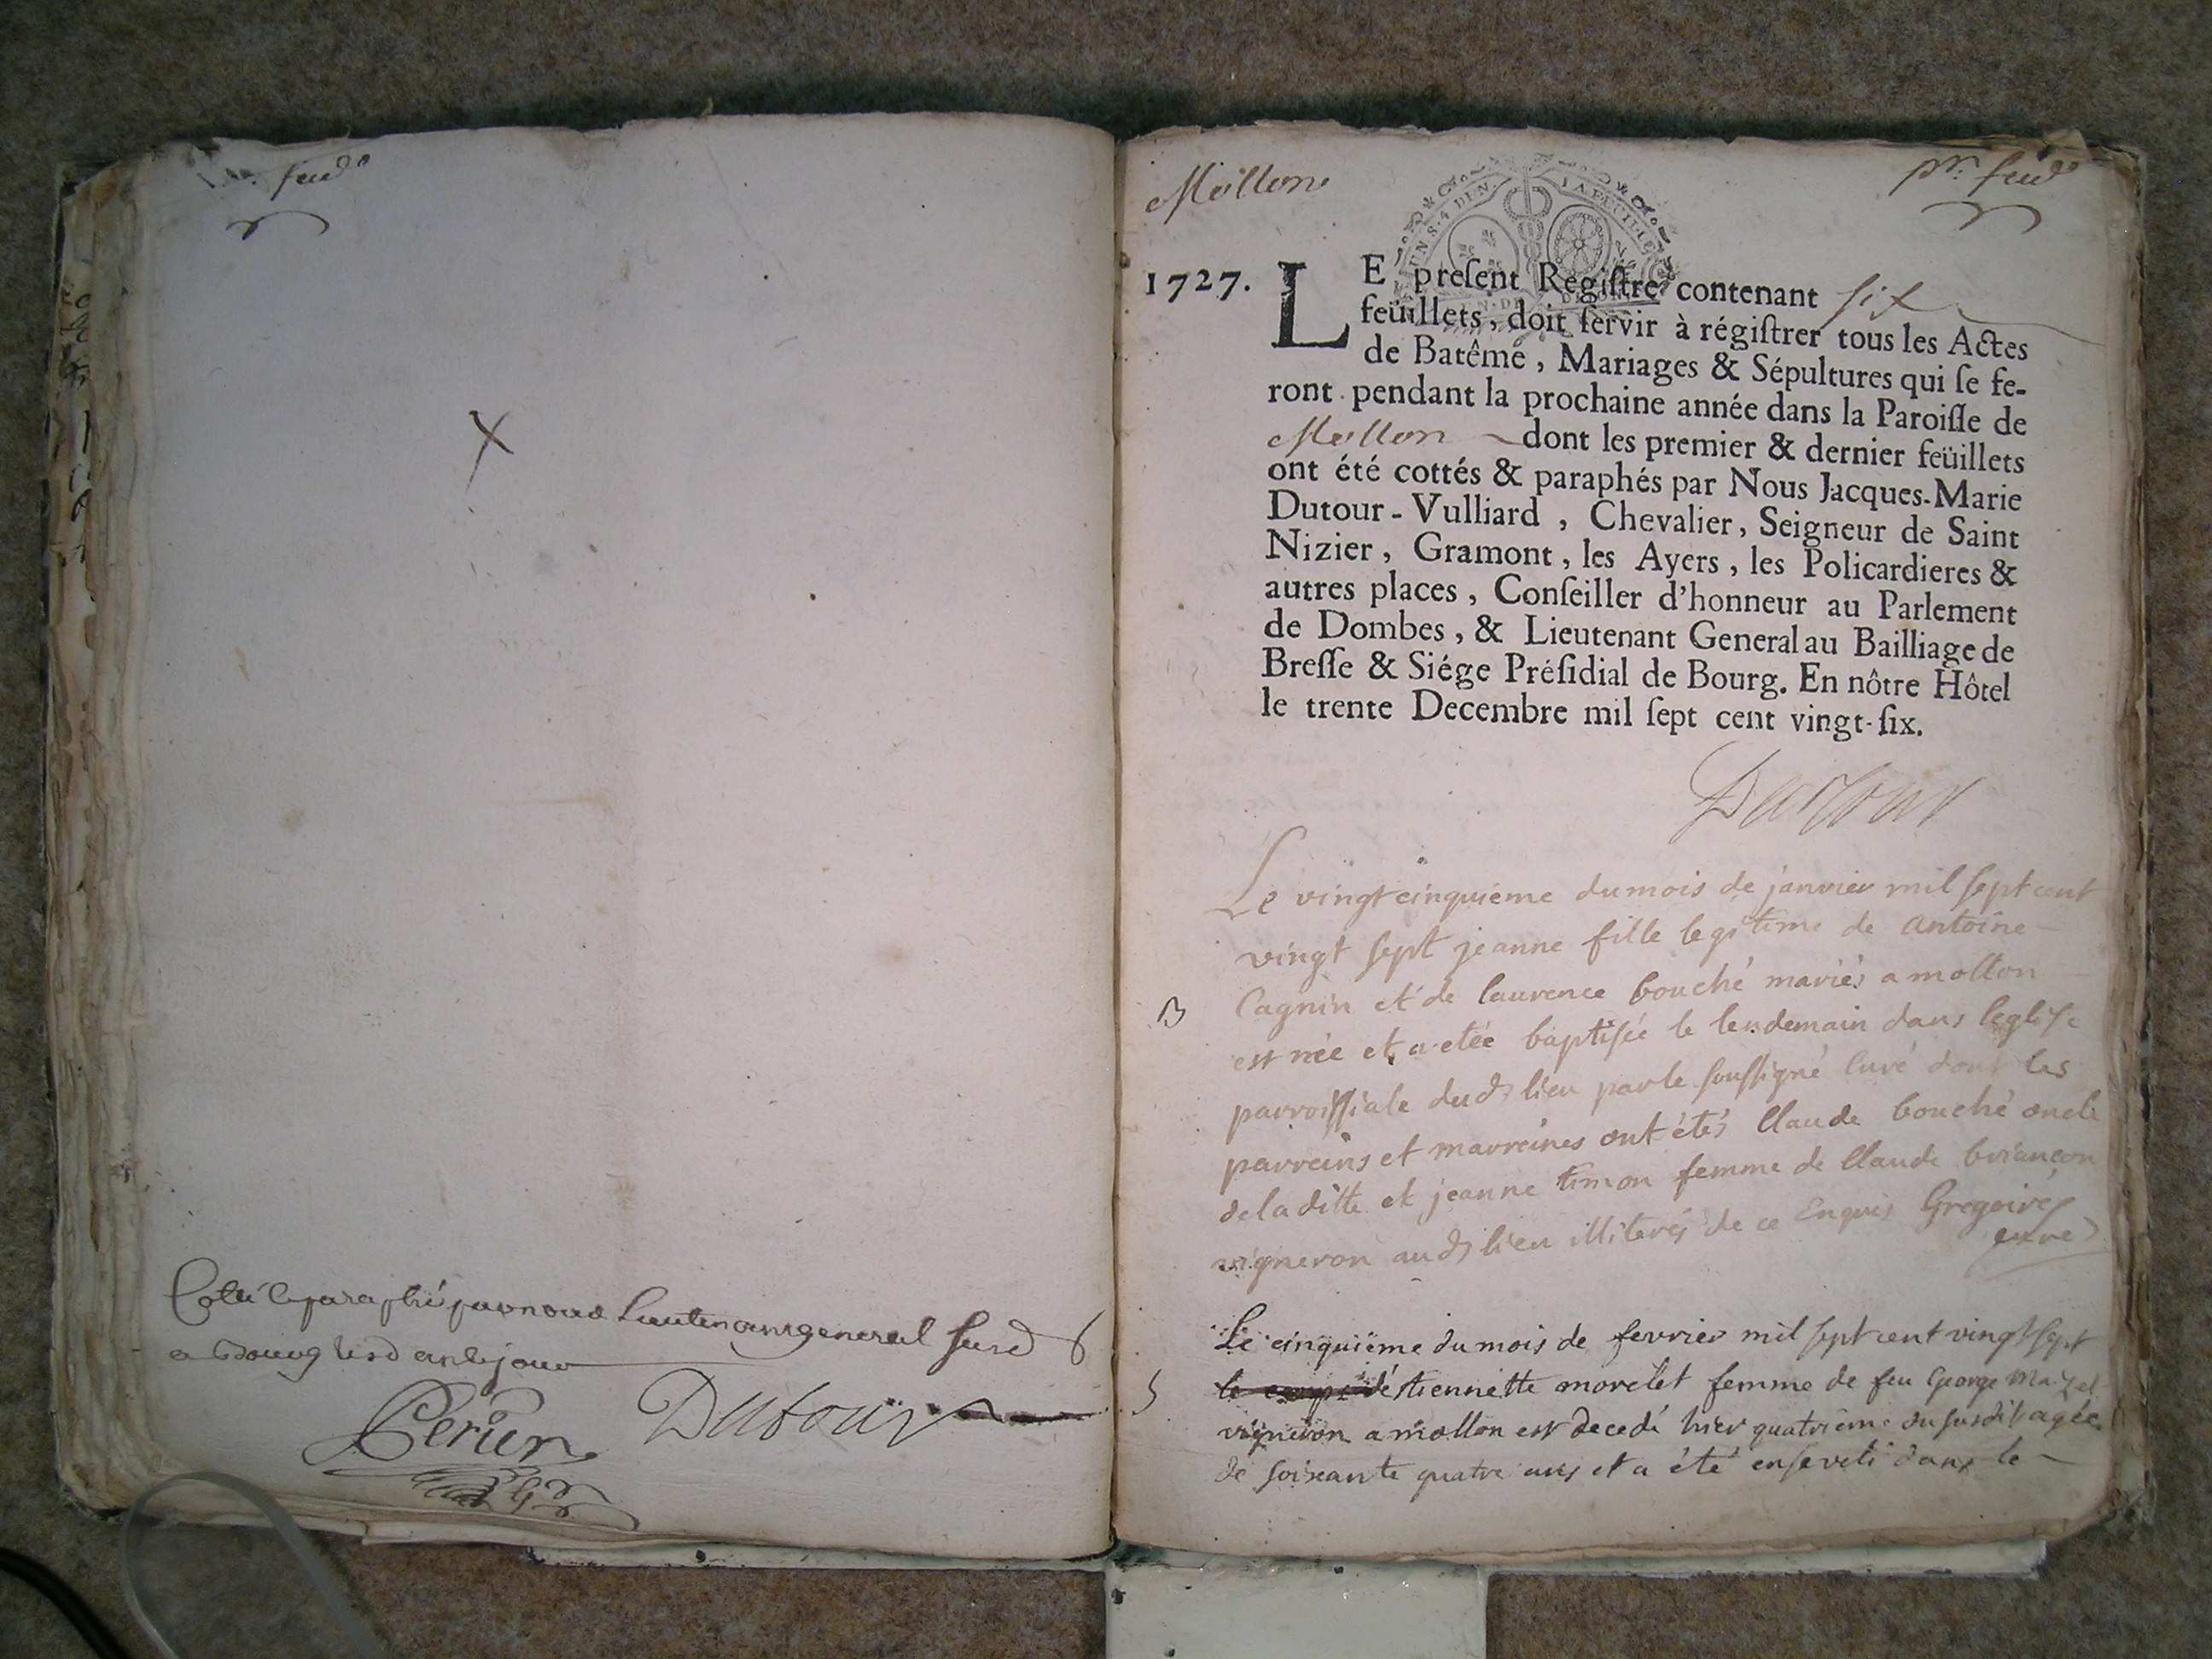 feud
Cotté et paraphé par nous Lieutenant general susd
a Bourg lesd an et jour
Perier
Dutour
Mollon
pr. feud
UN S. 4 DEN. LA FEUILLE
1727.
LE preſent Regiſtre contenant six
feüillets, doit ſervir à régiſtrer tous les Actes
de Batême, Mariages & Sépultures qui ſe fe-
ront pendant la prochaine année dans la Paroiſſe de
Mollon dont les premier & dernier feüillets
ont été cottés & paraphés par Nous Jacques-Marie
Dutour-Vulliard, Chevalier, Seigneur de Saint
Nizier, Gramont, les Ayers, les Policardieres &
autres places, Conſeiller d'honneur au Parlement
de Dombes, & Lieutenant General au Bailliage de
Breſſe & Siége Préſidial de Bourg. En nôtre Hôtel
le trente Decembre mil ſept cent vingt-ſix.
Dutour
Le vingt cinquieme du mois de janvier mil sept cent
vingt sept jeanne fille legitime de antoine
B Cagnin et de laurence bouché mariés a mollon
est née et a etée baptisée le lendemain dans leglise
parroissiale dud lieu par le soussigné Curé dont les
parreins et marreines ont étés Claude bouché oncle
de la ditte et jeanne timon femme de Claude briançon
vigneron aud lieu illiterés de ce Enquis Gregoire
curé
Le cinquiéme du mois de fevrier mil sept cent vingt sept
S le corps d'étiennette morelet femme de feu George Mazel
vigneron a mollon est decedé hier quatrieme du susdit agée
de soixante quatre ans et a été enseveli dans le